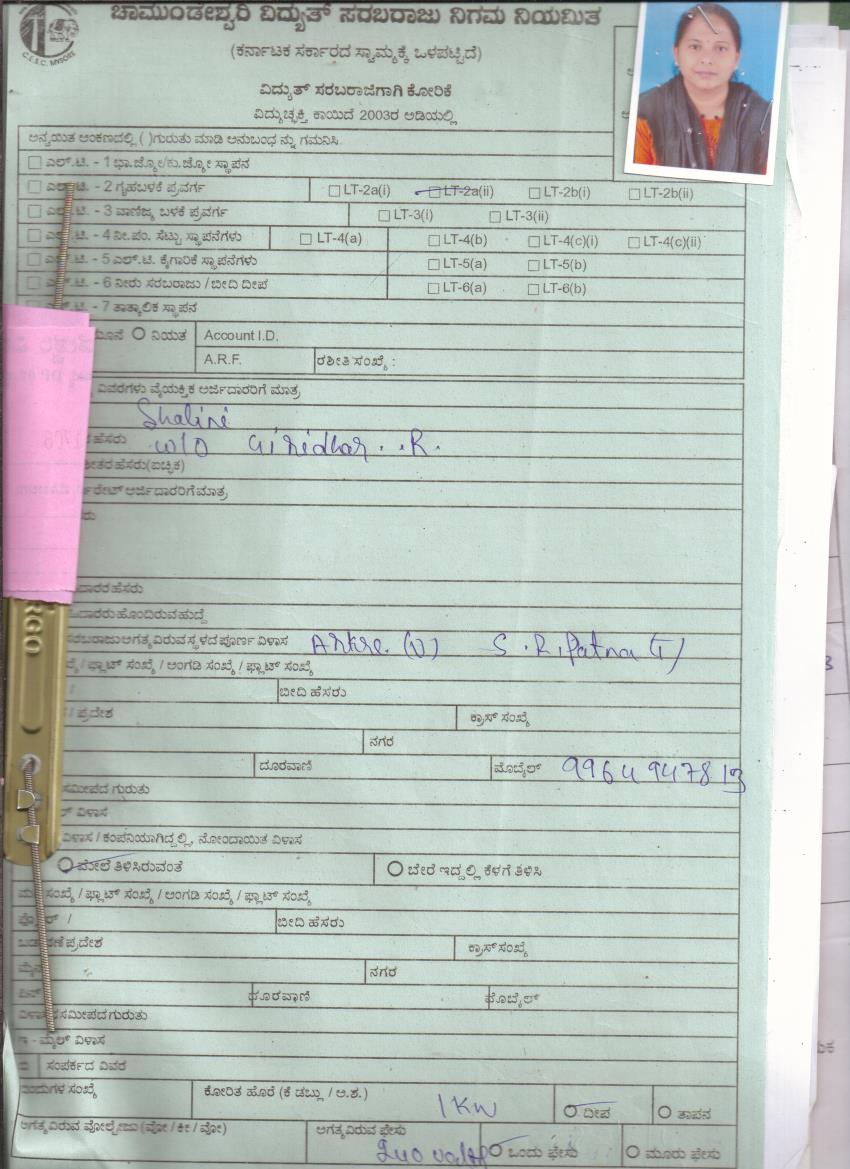 ಚಾಮುಂಡೇಶ್ವರಿ ವಿದ್ಯುತ್ ಸರಬರಾಜು ನಿಗಮ ನಿಯಮಿತ
C.E.S.C. MYSORE
(ಕರ್ನಾಟಕ ಸರ್ಕಾರದ ಸ್ವಾಮ್ಯಕ್ಕೆ ಒಳಪಟ್ಟಿದೆ)
ವಿದ್ಯುತ್ ಸರಬರಾಜಿಗಾಗಿ ಕೋರಿಕೆ
ವಿದ್ಯುಚ್ಛಕ್ತಿ ಕಾಯಿದೆ 2003ರ ಅಡಿಯಲ್ಲಿ
ಅನ್ವಯಿತ ಅಂಕಣದಲ್ಲಿ ( )ಗುರುತು ಮಾಡಿ ಅನುಬಂಧ ನ್ನು ಗಮನಿಸಿ
ಎಲ್.ಟಿ. - 1 ಭಾ.ಜ್ಯೋ/ಕು.ಜ್ಯೋ ಸ್ಥಾಪನ
ಎಲ್.ಟಿ. - 2 ಗೃಹಬಳಕೆ ಪ್ರವರ್ಗ LT-2a(i) LT-2a(ii) LT-2b(i) LT-2b(ii)
ಎಲ್.ಟಿ. - 3 ವಾಣಿಜ್ಯ ಬಳಕೆ ಪ್ರವರ್ಗ LT-3(i) LT-3(ii)
ಎಲ್.ಟಿ. - 4 ನೀ.ಪಂ. ಸೆಟ್ಟು ಸ್ಥಾಪನೆಗಳು LT-4(a) LT-4(b) LT-4(c)(i) LT-4(c)(ii)
ಎಲ್.ಟಿ. - 5 ಎಲ್.ಟಿ. ಕೈಗಾರಿಕೆ ಸ್ಥಾಪನೆಗಳು LT-5(a) LT-5(b)
ಎಲ್.ಟಿ. - 6 ನೀರು ಸರಬರಾಜು / ಬೀದಿ ದೀಪ LT-6(a) LT-6(b)
ಎಲ್.ಟಿ. - 7 ತಾತ್ಕಾಲಿಕ ಸ್ಥಾಪನ
ನಿಯತ Account I.D.
A.R.F. ರಶೀತಿ ಸಂಖ್ಯೆ :
ವಿವರಗಳು ವೈಯಕ್ತಿಕ ಅರ್ಜಿದಾರರಿಗೆ ಮಾತ್ರ
Shalini
ಹೆಸರು W/O Giridhar . R.
ಹೆಸರು(ಐಚ್ಛಿಕ)
ಅರ್ಜಿದಾರರಿಗೆ ಮಾತ್ರ
ಹೆಸರು
ಹೊಂದಿರುವ ಹುದ್ದೆ
ಸರಬರಾಜು ಅಗತ್ಯವಿರುವ ಸ್ಥಳದ ಪೂರ್ಣ ವಿಳಾಸ Arkre. (V) S. R. Patna (T)
/ ಫ್ಲಾಟ್ ಸಂಖ್ಯೆ / ಅಂಗಡಿ ಸಂಖ್ಯೆ / ಫ್ಲಾಟ್ ಸಂಖ್ಯೆ
/ ಬೀದಿ ಹೆಸರು
/ ಪ್ರದೇಶ ಕ್ರಾಸ್ ಸಂಖ್ಯೆ
ನಗರ
ದೂರವಾಣಿ ಮೊಬೈಲ್ 9964947813
ಸಮೀಪದ ಗುರುತು
ವಿಳಾಸ
ವಿಳಾಸ / ಕಂಪನಿಯಾಗಿದ್ದಲ್ಲಿ, ನೋಂದಾಯಿತ ವಿಳಾಸ
ಮೇಲೆ ತಿಳಿಸಿರುವಂತೆ ಬೇರೆ ಇದ್ದಲ್ಲಿ ಕೆಳಗೆ ತಿಳಿಸಿ
ಸಂಖ್ಯೆ / ಫ್ಲಾಟ್ ಸಂಖ್ಯೆ / ಅಂಗಡಿ ಸಂಖ್ಯೆ / ಫ್ಲಾಟ್ ಸಂಖ್ಯೆ
/ ಬೀದಿ ಹೆಸರು
ಪ್ರದೇಶ ಕ್ರಾಸ್ ಸಂಖ್ಯೆ
ನಗರ
ದೂರವಾಣಿ ಮೊಬೈಲ್
ಸಮೀಪದ ಗುರುತು
ಇ - ಮೈಲ್ ವಿಳಾಸ
ಸಂಪರ್ಕದ ವಿವರ
ಸಂಖ್ಯೆ ಕೋರಿತ ಹೊರೆ (ಕೆ ಡಬ್ಲು / ಅ.ಶ.) 1 KW ದೀಪ ತಾಪನ
ಅಗತ್ಯವಿರುವ ವೋಲ್ಟೇಜು (ವೋ / ಕೀ / ವೋ) ಅಗತ್ಯವಿರುವ ಫೇಸು 240 ಒಂದು ಫೇಸು ಮೂರು ಫೇಸು